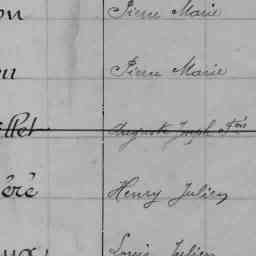 on Pierre Marie
n Pierre Marie
illet Auguste Joseph Fçois
éré Henry Julien
ux Louis Julien